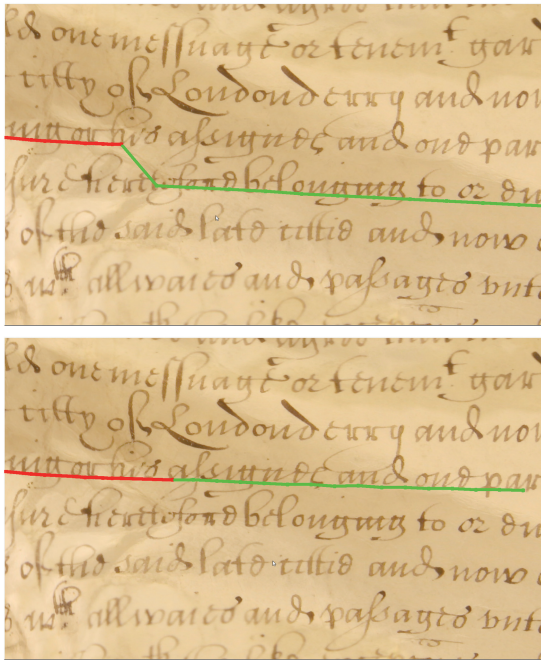 & one messuage or tenemt gar
tilly of Londonderry and now
his assignes and one par
sure heretofore belonging to or du
of the said late cittie and now
wth all waies and passages unto
& one messuage or tenemt gar
tilly of Londonderry and now
his assignes and one par
sure heretofore belonging to or du
of the said late cittie and now
wth all waies and passages unto